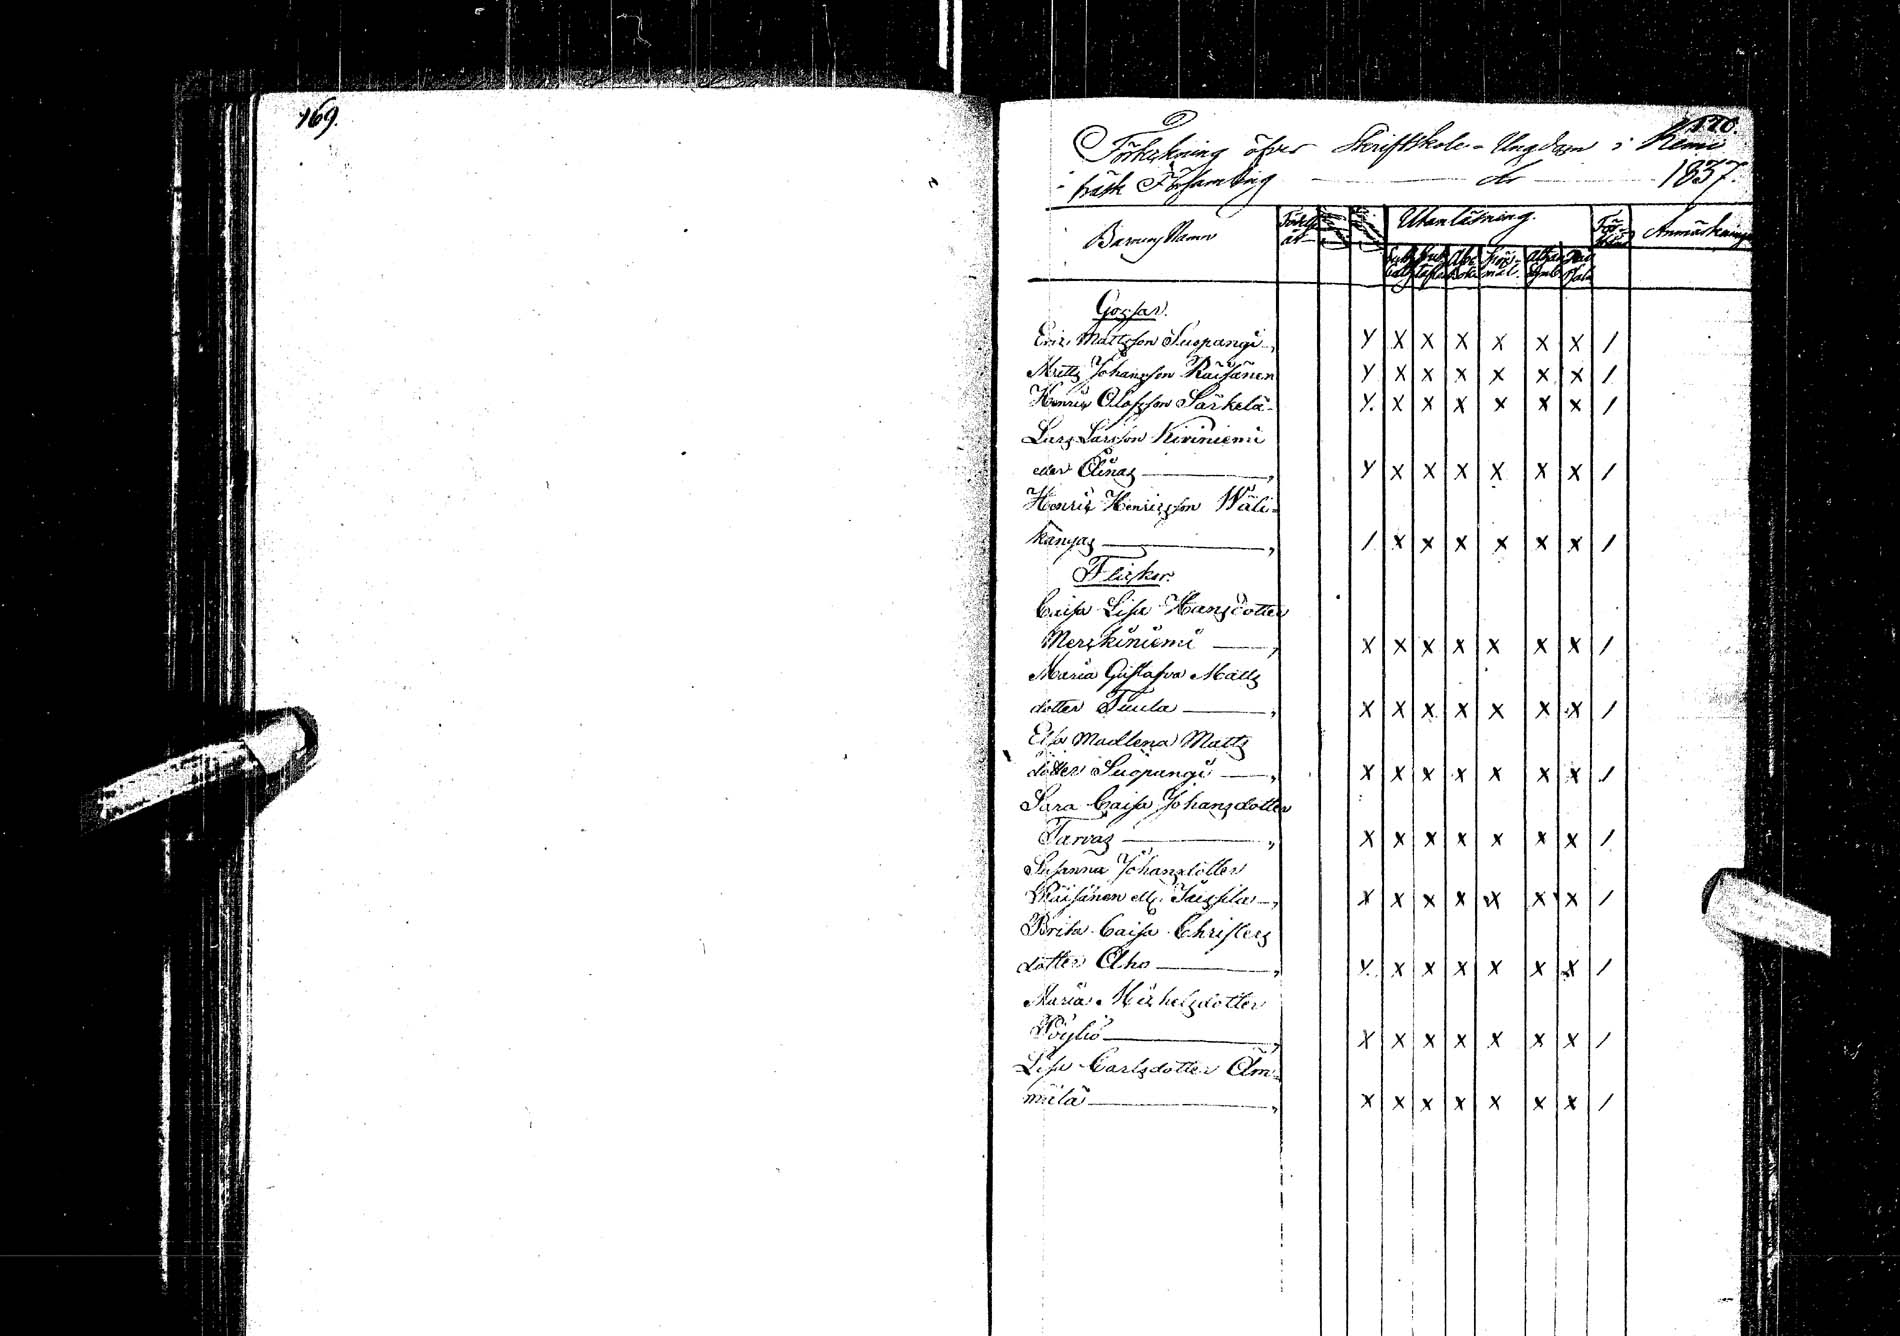 169.
170.
Förteckning öfver Skriftskole-Ungdom i Kemi
träsk Församling år 1837.
Barnens Namn
Utanläsning.
Anmärkning
Gossar.
Eric Mattsson Suopangi
Y X X X X X X /
Matts Johansson Räisänen
Y X X X X X X /
Henric Olofsson Särkelä
Y. X X X X X X /
Lars Larsson Kiviniemi
eller Olinas
Y X X X X X X /
Henric Henricsson Wäli-
kangas
/ X X X X X X /
Flickor.
Caisa Lisa Hansdotter
Merskiniemi
X X X X X X X /
Maria Gustafva Matts
dotter Tuula
X X X X X X X /
Elsa Madlena Matts
dotter Suopangi
X X X X X X X /
Sara Caisa Johansdotter
Tarvas
X X X X X X X /
Susanna Johansdotter
Räisänen ell.
X X X X X X X /
Brita Caisa Christers
dotter Aho
Y. X X X X X X /
Maria Michelsdotter
Pöyliö
X X X X X X X /
Lisa Carlsdotter Äm-
mälä
X X X X X X X /